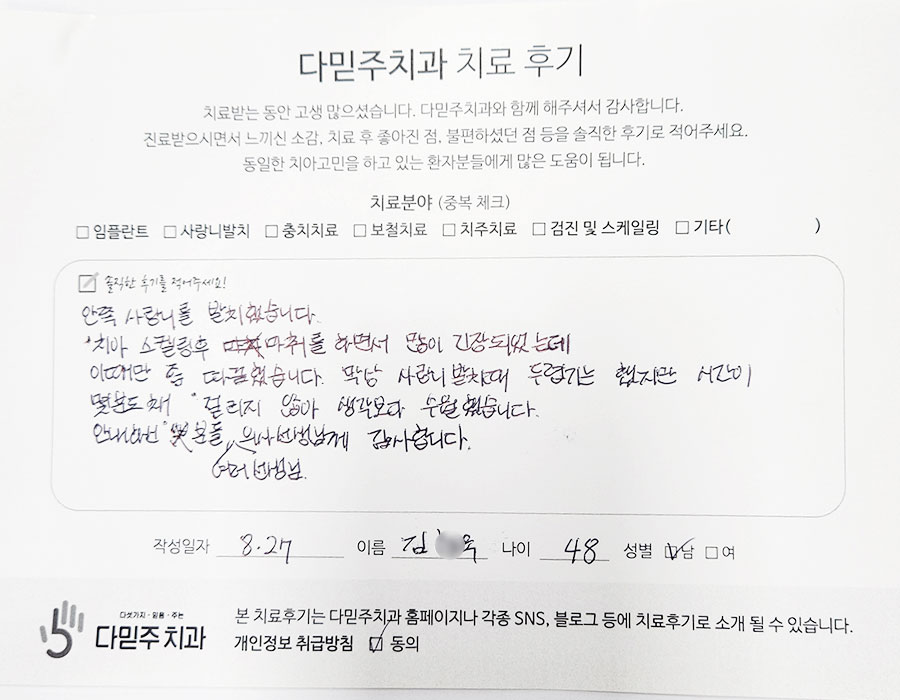 다믿주치과 치료 후기
치료받는 동안 고생 많으셨습니다. 다믿주치과와 함께 해주셔서 감사합니다.
진료받으시면서 느끼신 소감, 치료 후 좋아진 점, 불편하셨던 점 등을 솔직한 후기로 적어주세요.
동일한 치아고민을 하고 있는 환자분들에게 많은 도움이 됩니다.
치료분야 (중복 체크)
□ 임플란트 □ 사랑니발치 □ 충치치료 □ 보철치료 □ 치주치료 □ 검진 및 스케일링 □ 기타( )
솔직한 후기를 적어주세요!
안쪽 사랑니를 발치했습니다.
치아 스켈링후 마취를 하면서 많이 긴장되었는데
이때만 좀 따끔했습니다. 막상 사랑니 발치때 두렵기는 했지만 시간이
몇분도 채 걸리지 않아 생각보다 수월했습니다.
안내하신 분들, 의사선생님께 감사합니다.
여러선생님.
작성일자 8.27 이름 김 옥 나이 48 성별 ☑남 □여
다섯가지·믿음·주는
다믿주치과
본 치료후기는 다믿주치과 홈페이지나 각종 SNS, 블로그 등에 치료후기로 소개 될 수 있습니다.
개인정보 취급방침 ☑ 동의